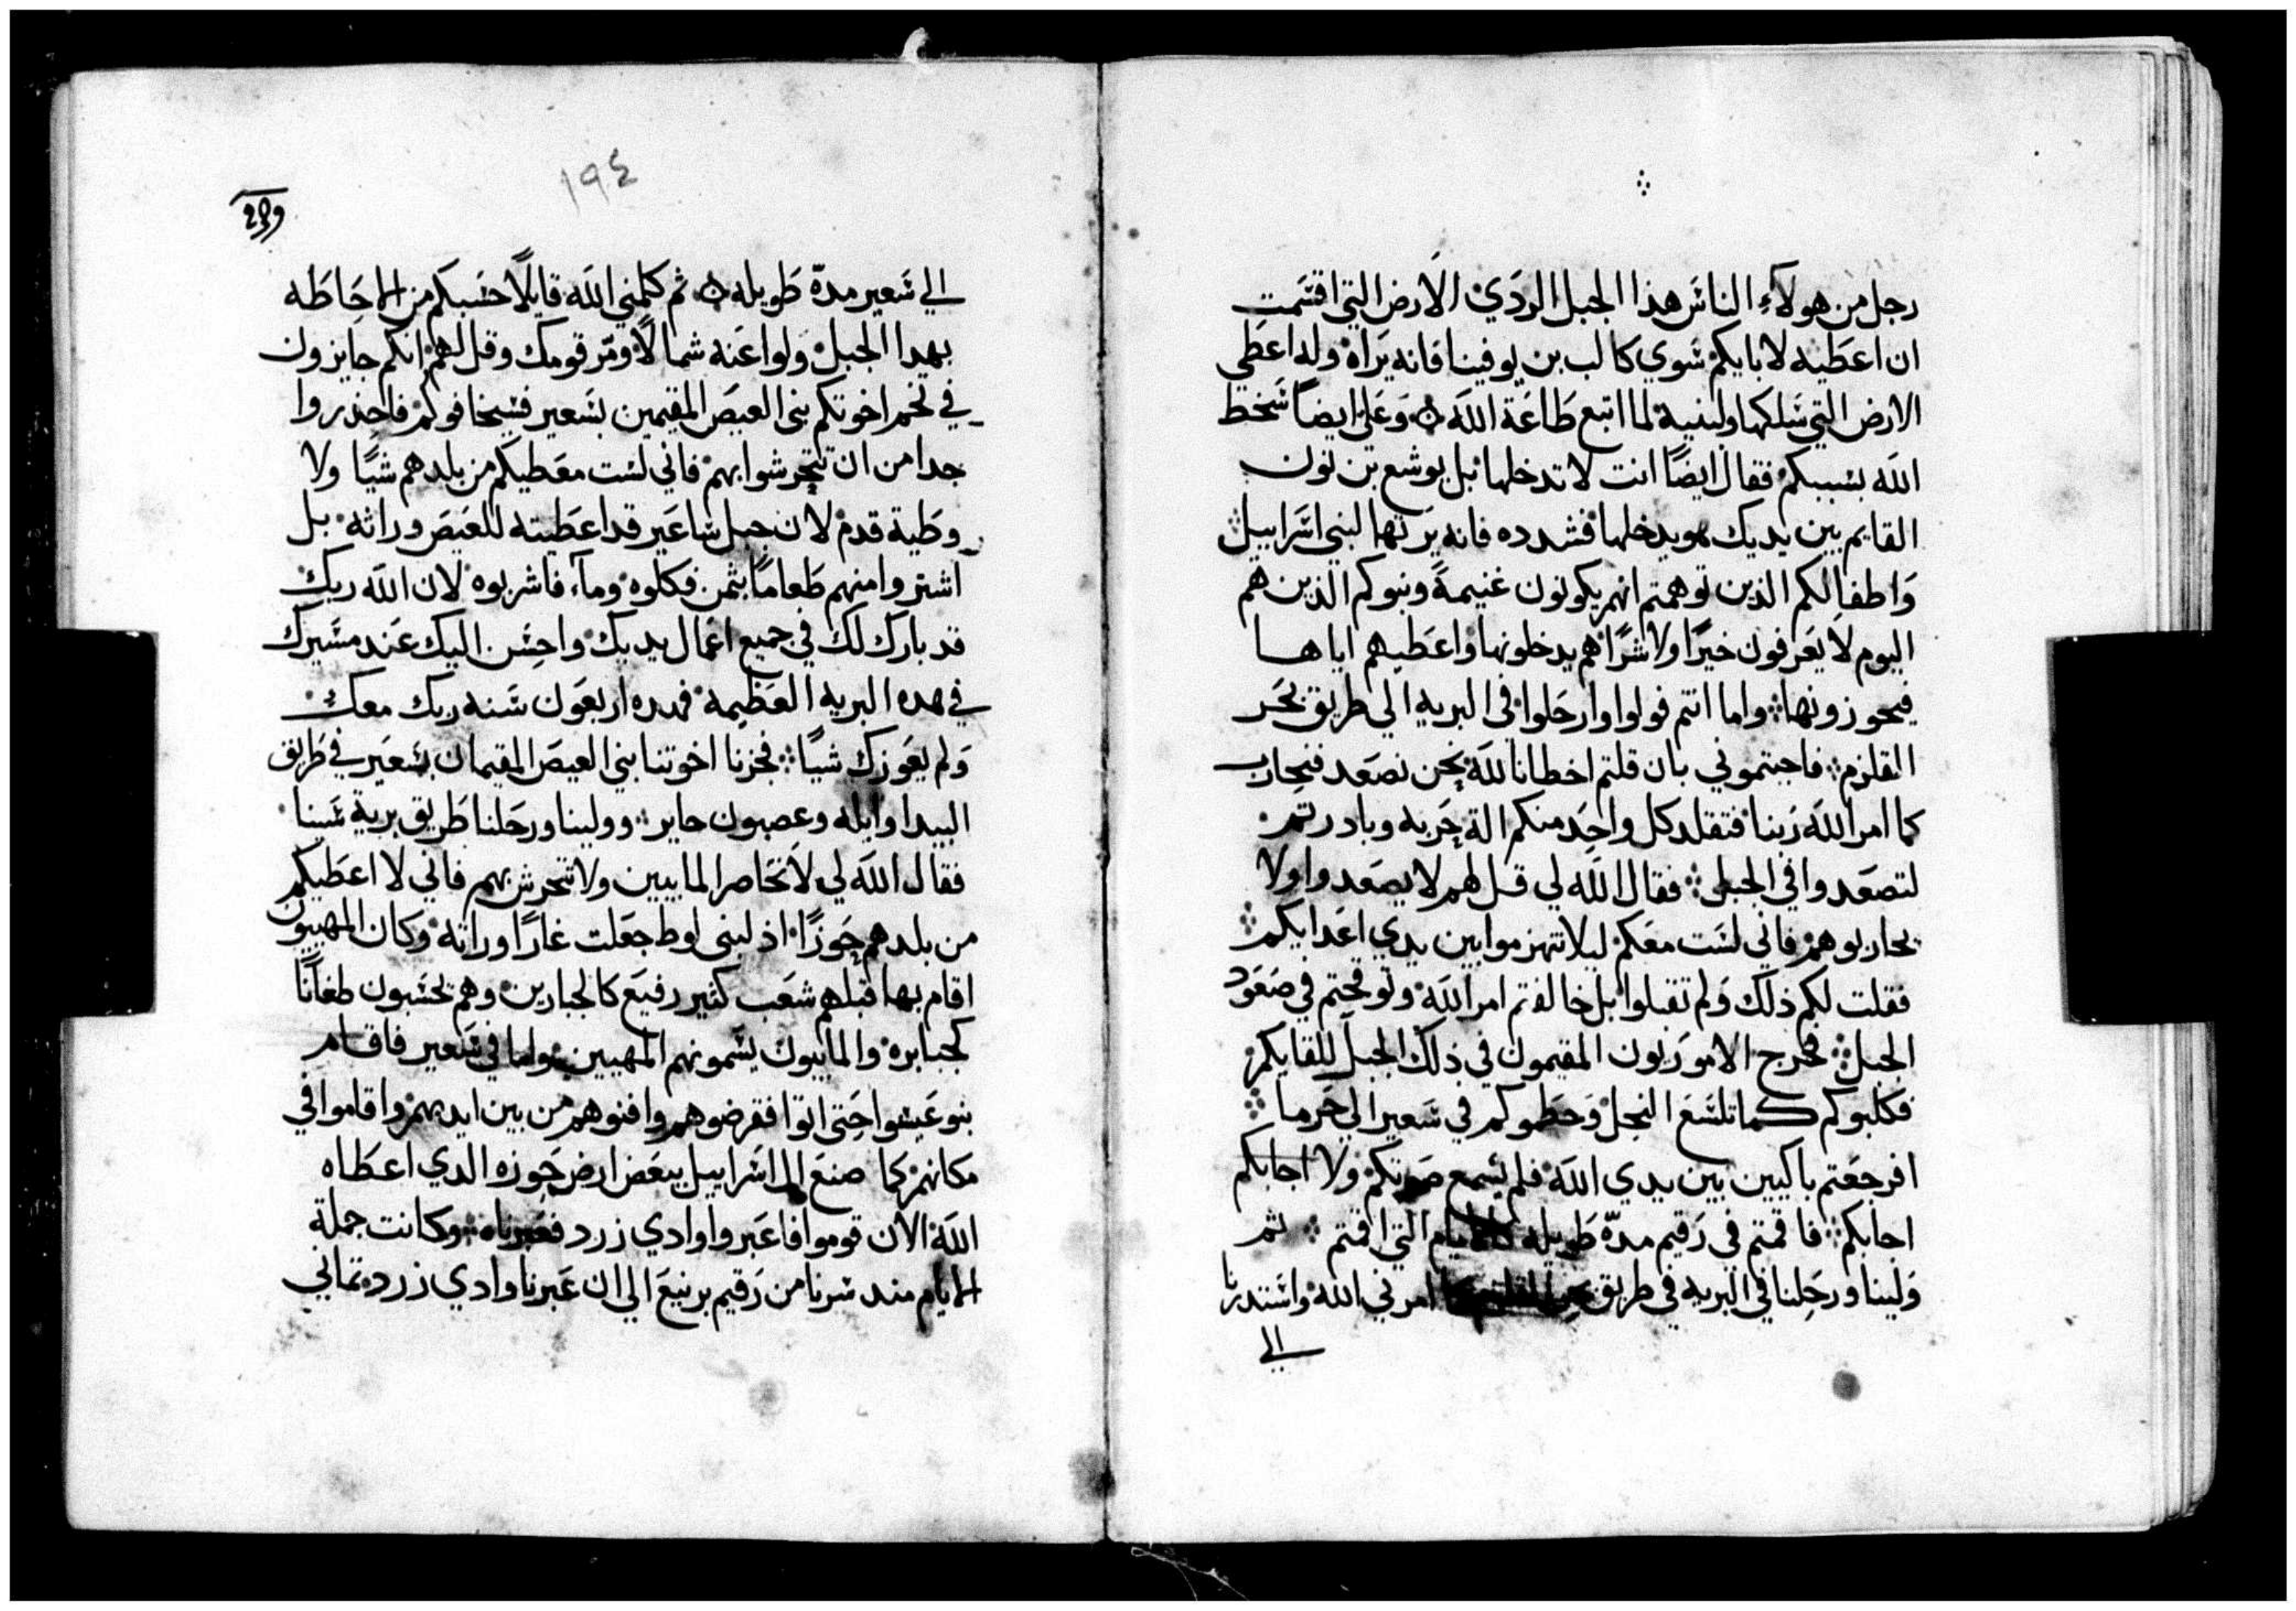 رجل من هولاء الناس هذا الجبل الردي الارض التي اقسمت
ان اعطيه لابايكم سوي كالب بن يوفينا فانه يراه وله اعطي
الارض التي سلكها ولبنيه لما اتبع طاعة الله وعلي ايضاً سخط
الله بسببكم فقال ايضًا انت لا تدخلها بل يوشع بن نون
القايم بين يديك هو يدخلها فشدده فانه يرثها لبني اسراييل
واطفالكم الذين توهمتم انهم يكونون غنيمةً وبنوكم الذين هم
اليوم لا يعرفون خيرًا ولا شرًا هم يدخلونها واعطيهم اياها
فيحوزونها واما انتم فولوا وارحلوا في البريه الي طريق بحر
القلزم فاجبتموني بان قلتم اخطانا لله نحن نصعد فنحارب
كما امر الله ربنا فتقلد كل واحد منكم الة حربه وبادرتم
لتصعدوا في الجبل فقال الله لي قل لهم لا يصعدوا ولا
يحاربوهم فاني لست معكم ليلا تنهزموا بين يدي اعدايكم
فقلت لكم ذلك ولم تقبلوا بل خالفتم امر الله وتوقحتم في صعود
الجبل فخرج الاموريون المقيمون في ذلك الجبل للقايكم
فكلبوكم كما تلسع النحل وحطموكم في سعير الي حرما
افرجعتم باكيين بين يدي الله فلم يسمع صوتكم ولا اجابكم
اجابكم فاقمتم في رقيم مدّة طويله كالايام التي اقمتم ثم
ولينا ورحلنا في البريه في طريق امرني الله واستدرنا
الي
١٩٤
الي سعير مدّة طويله ثم كلمني الله قايلًا حسبكم من الاحاطه
بهدا الجبل ولوا عنه شمالًا ومّر قومك وقل لهم انكم جايزون
في تخم اخوتكم بني العيص المقيمين بسعير فسيخافوكم فاحذروا
جدا من ان تتحرشوا بهم فاني لست معطيكم من بلدهم شيًا ولا
وطية قدم لان جبل ساعير قد اعطيته للعيص وراثه بل
اشتروا منهم طعامًا بثمن فكلوه وماء فاشربوه لان الله ربك
قد بارك لك في جميع اعمال يديك واحسن اليك عند مسيرك
في هده البريه العظيمه فهده اربعون سنه ربك معك
ولم يعوزك شيًا فجزنا اخوتنا بني العيص المقيمان بسعير في طريق
البيدا وايله وعصيون جابر وولينا ورحلنا طريق برية سينا
فقال الله لي لا تحاصر المابيين ولا تتحرش بهم فاني لا اعطيكم
من بلدهم حوزًا اذ لبني لوط جعلت عارًا وراثه وكان المهيبون
اقام بها قبلهم شعب كثير رفيع كالجبارين وهم يحسبون طغانًا
كجبابره والمابيون يسمونهم المهيبين واما في سعير فاقام
بنو عيسوا حتي اتوا فقرضوهم وافنوهم من بين ايديهم واقاموا في
مكانهم كما صنع ال اسراييل ببعض ارض حوزه الدي اعطاه
الله الان قوموا فاعبروا وادي زرد فعبرناه وكانت جملة
الايام مند سرنا من رقيم برنيع الي ان عبرنا وادي زرد تماني